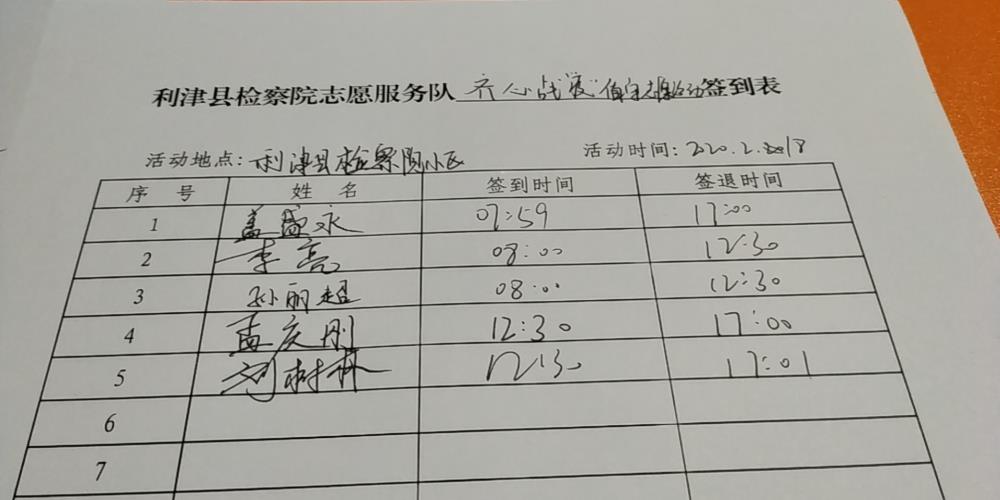 利津县检察院志愿服务队 齐心战疫 值守 活动签到表
活动地点：利津县检察院小区 活动时间：2020.2.18
序 号 姓 名 签到时间 签退时间
1 盖盛永 07:59 17:00
2 李亮 08:00 12:30
3 孙丽超 08:00 12:30
4 孟庆刚 12:30 17:00
5 刘树林 12:30 17:01
6
7